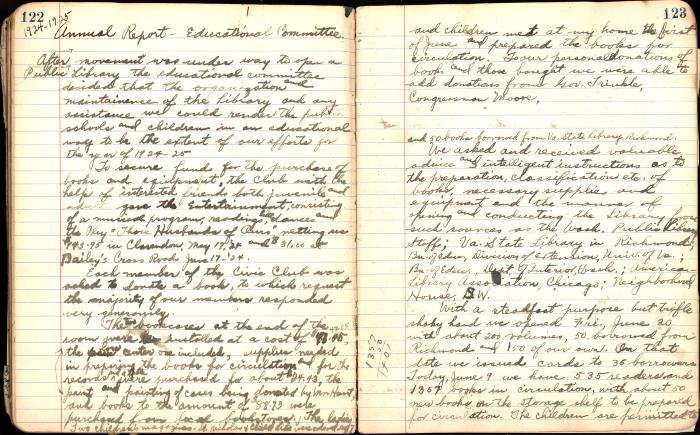 122
1924-1925
Annual Report - Educational Committee.
After movement was under way to open a
Public Library the educational committee
decided that the organization and
maintainence of the Library and any
assistance we could render the public
schools and children in an educational
way to be the extent of our efforts for
the year of 1924-25
To secure funds for the purchase of
books and equipment, the Club with the
help of interested friends both juvenile and
adult gave the Entertainment, consisting
of a musical program, readings, dances and
the Play "Those Husbands of Ours" netting us
$43.95 in Clarendon, May 17, '24 and $31.00 at
Bailey's Cross Roads June 17-'24.
Each member of the Civic Club was
asked to donate a book, to which request
the majority of our members responded
very generously.
The bookcases at the end of the
room were installed at a cost of
the center one included, supplies needed
in preparing the books for circulation and for the
records were purchased for about $24.43, the
paint and painting of cases being donated by Mr. Hunt,
and books to the amount of 88.73 were
purchased from. The ladies
Two children's magazines
123
and children met at my home the first
of June and prepared the books for
circulation. To our personal donations of
books and those bought we were able to
add donations from Gov. Trinkle,
Congressman Moore,
and 50 books borrowed from Va. State Library, Richmond.
We asked and received valuable
advice and intelligent instructions as to
the preparation, classifications etc. of
books, necessary supplies and
equipment and the manner of
opening and conducting the Library from
such sources as the Wash. Public Library
Staff; Va. State Library in Richmond;
Bu. of Educ., Division of Extension, Univ. of Va.;
Bu. of Educ., Dept. of Interior, Wash.; American
Library Association, Chicago; Neighborhood
House, S.W.
With a steadfast purpose but trifle
shaky hand we opened Fri., June 20
with about 200 volumes, 50 borrowed from
Richmond and 150 of our own. On that
date we issued cards to 35 borrowers
Today, June 9 we have 535 readers and
1357 books in circulation, with about 50
new books on the storage shelf to be prepared
for circulation. The children are permitted to
1357